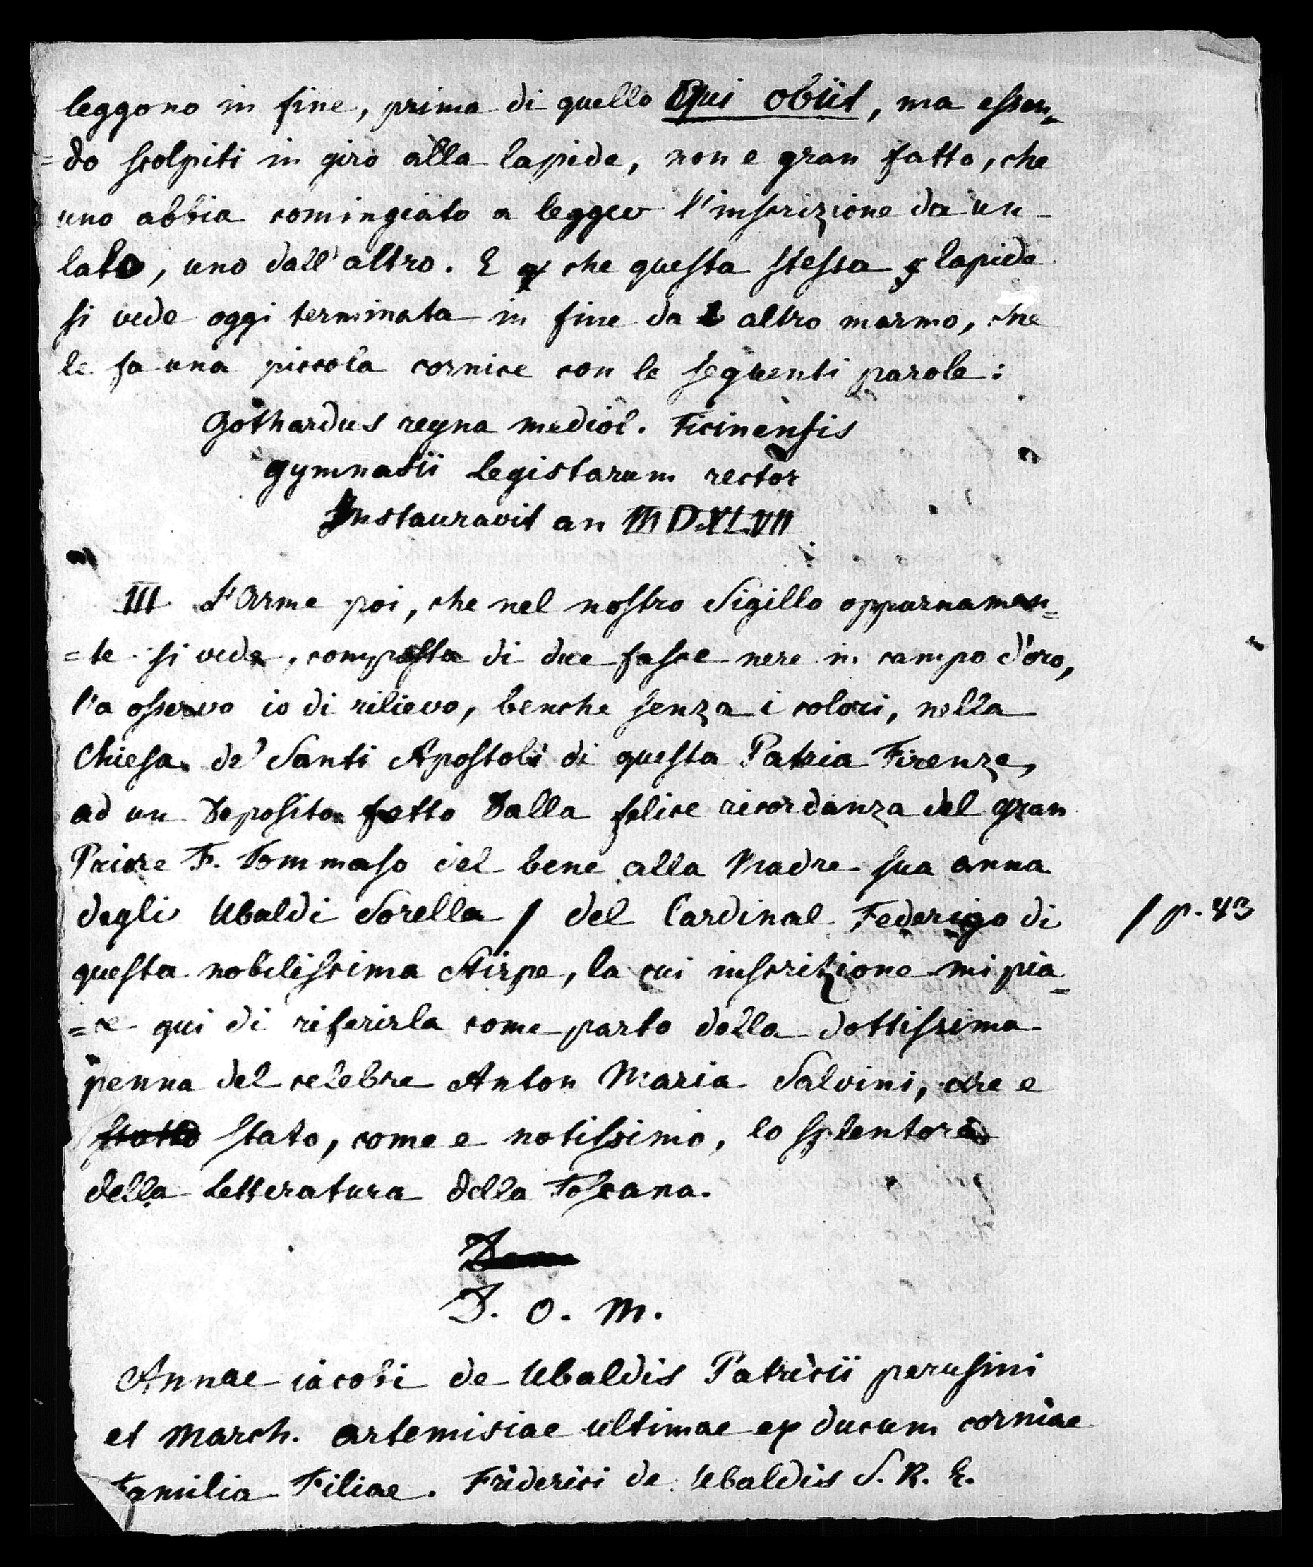 leggono in fine, prima di quello Qui obiit, ma essen=
=do scolpiti in giro alla lapida, non e gran fatto, che
uno abbia comingiato a leggere l'inscrizione da un
lato, uno dall'altro. E che questa stessa lapida
si vede oggi terminata in fine da altro marmo, che
le fa una piccola cornice con le seguenti parole:
Gothardus regna mediol. Ticinensis
gymnasii legistarum rector
Instauravit an MDXLVII
III L'Arme poi, che nel nostro Sigillo oppurnamen=
=te si vede, composta di due fasce nere in campo d'oro,
l'a osservo io di rilievo, benche senza i colori, nella
Chiesa de' Santi Apostoli di questa Patria Firenze,
ad un Deposito fatto dalla felice ricordanza del gran
Priore F. Tommaso del bene alla Madre sua anna
degli Ubaldi Sorella / del Cardinal Federigo di
/ p. 43
questa nobilissima Stirpe, la cui inscrizione mi pia=
=ce qui di riferirla come parto della dottissima
penna del celebre Anton Maria Salvini, che e
stato, come e notissimo, lo splentore
della Letteratura della Toscana.
D. O. M.
Annae iacobi de Ubaldis Patricii perusini
et March. artemisiae ultimae ex ducum corniae
Familia Filiae. Friderici de Ubaldis S. R. E.